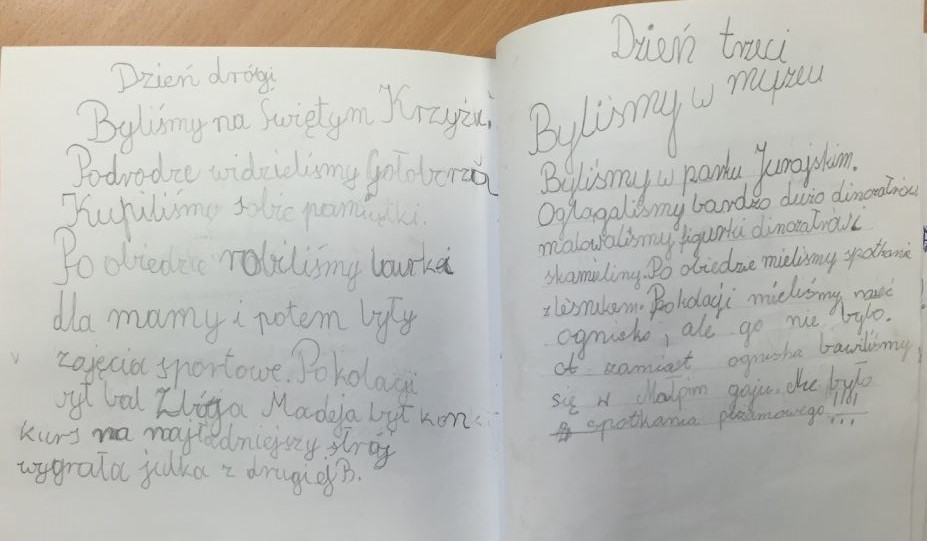 Dzień drógi
Byliśmy na Świętym Krzyżu.
Podrodze widzieliśmy Gołoborza
Kupiliśmy sobie pamiątki.
Po obiedzie robiliśmy laurkę
dla mamy i potem były
zajęcia sportowe. Pokolacji
był bal Zbója Madeja był kon-
kurs na najładniejszy strój
wygrała julka z drugiej B.
Dzień trzeci
Byliśmy w muzeu
Byliśmy w parku Jurajskim.
Oglągaliśmy bardzo dużo dinozałrów
malowaliśmy figurki dinozałrów i
skamieliny. Po obiedzie mieliśmy spotkanie
z leśnikem. Pokolacji mieliśmy mieć
ognisko, ale go nie było.
A zamiast ogniska bawiliśmy
się w Małpim gaju. Nie było
spotkania piżamowego!!!!...